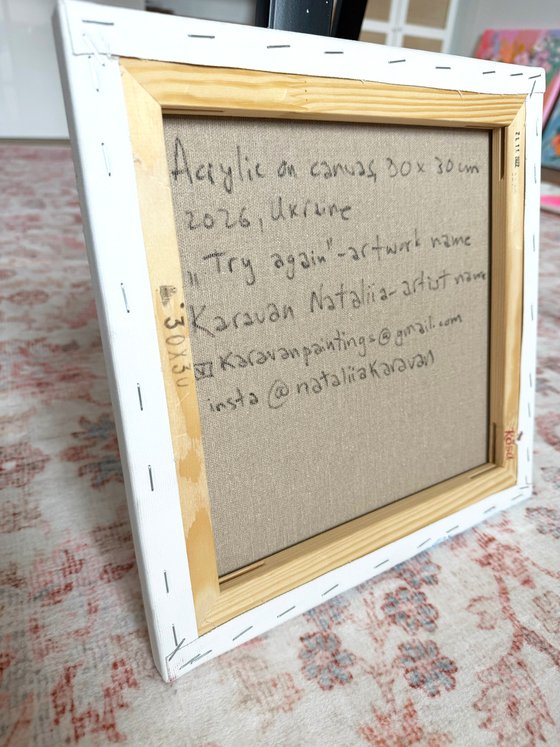 Acrylic on canvas, 30 x 30 cm
2026, Ukraine
„Try again" - artwork name
Karavan Nataliia - artist name
karavanpaintings@gmail.com
insta @nataliiakaravan
30X30
Rosa